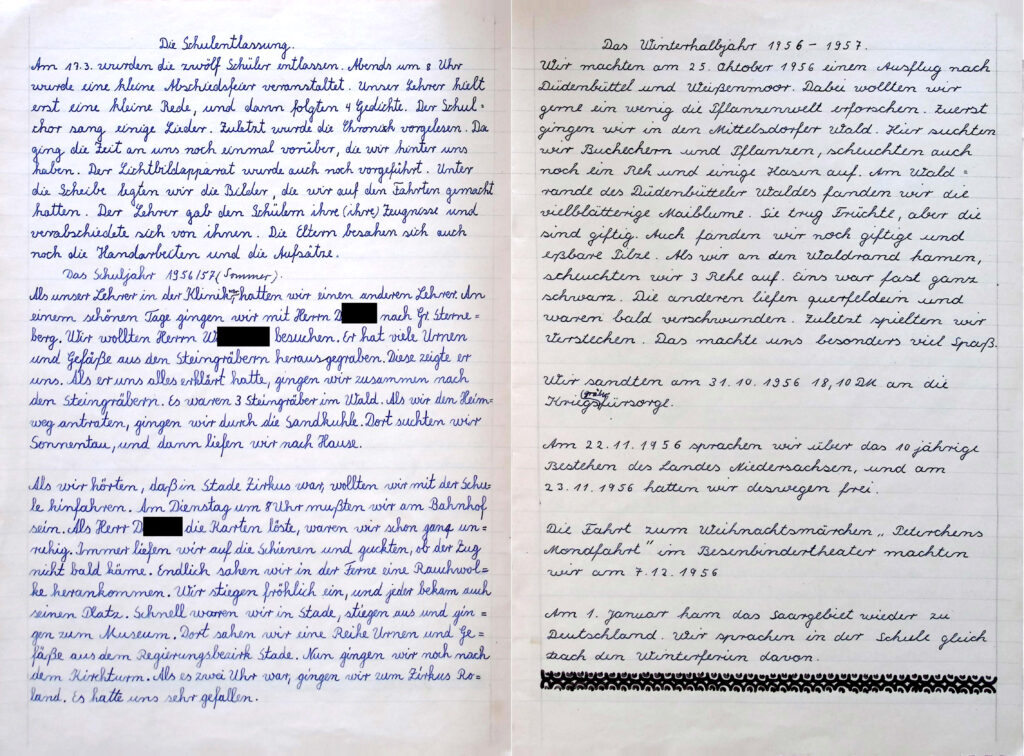 Die Schulentlassung.
Am 17.3. wurden die zwölf Schüler entlassen. Abends um 8 Uhr
wurde eine kleine Abschiedsfeier veranstaltet. Unser Lehrer hielt
erst eine kleine Rede, und dann folgten 4 Gedichte. Der Schul=
chor sang einige Lieder. Zuletzt wurde die Chronik vorgelesen. Da
ging die Zeit an uns noch einmal vorüber, die wir hinter uns
haben. Der Lichtbildapparat wurde auch noch vorgeführt. Unter
die Scheibe legten wir die Bilder, die wir auf den Fahrten gemacht
hatten. Der Lehrer gab den Schülern ihre (ihre) Zeugnisse und
verabschiedete sich von ihnen. Die Eltern besahen sich auch
noch die Handarbeiten und die Aufsätze.
Das Schuljahr 1956/57 (Sommer).
Als unser Lehrer in der Klinik war, hatten wir einen anderen Lehrer. An
einem schönen Tage gingen wir mit Herrn D nach Gr. Sterne=
berg. Wir wollten Herrn W besuchen. Er hat viele Urnen
und Gefäße aus den Steingräbern herausgegraben. Diese zeigte er
uns. Als er uns alles erklärt hatte, gingen wir zusammen nach
den Steingräbern. Es waren 3 Steingräber im Wald. Als wir den Heim=
weg antraten, gingen wir durch die Sandkuhle. Dort suchten wir
Sonnentau, und dann liefen wir nach Hause.
Als wir hörten, daß in Stade Zirkus war, wollten wir mit der Schu=
le hinfahren. Am Dienstag um 8 Uhr mußten wir am Bahnhof
sein. Als Herr D die Karten löste, waren wir schon ganz un=
ruhig. Immer liefen wir auf die Schienen und guckten, ob der Zug
nicht bald käme. Endlich sahen wir in der Ferne eine Rauchwol=
ke herankommen. Wir stiegen fröhlich ein, und jeder bekam auch
seinen Platz. Schnell waren wir in Stade, stiegen aus und gin=
gen zum Museum. Dort sahen wir eine Reihe Urnen und Ge=
fäße aus dem Regierungsbezirk Stade. Nun gingen wir noch nach
dem Kirchturm. Als es zwei Uhr war, gingen wir zum Zirkus Ro=
land. Es hatte uns sehr gefallen.
Das Winterhalbjahr 1956 – 1957.
Wir machten am 25. Oktober 1956 einen Ausflug nach
Düdenbüttel und Weißenmoor. Dabei wollten wir
gerne ein wenig die Pflanzenwelt erforschen. Zuerst
gingen wir in den Mittelsdorfer Wald. Hier suchten
wir Bucheckern und Pflanzen, scheuchten auch
noch ein Reh und einige Hasen auf. Am Wald=
rande des Düdenbütteler Waldes fanden wir die
vielblätterige Maiblume. Sie trug Früchte, aber die
sind giftig. Auch fanden wir noch giftige und
eßbare Pilze. Als wir an den Waldrand kamen,
scheuchten wir 3 Rehe auf. Eins war fast ganz
schwarz. Die anderen liefen querfeldein und
waren bald verschwunden. Zuletzt spielten wir
Verstecken. Das machte uns besonders viel Spaß.
Wir sandten am 31.10.1956 18,10 DM an die
Kriegsgräberfürsorge.
Am 22.11.1956 sprachen wir über das 10 jährige
Bestehen des Landes Niedersachsen, und am
23.11.1956 hatten wir deswegen frei.
Die Fahrt zum Weihnachtsmärchen „Peterchens
Mondfahrt" im Besenbindertheater machten
wir am 7.12.1956
Am 1. Januar kam das Saargebiet wieder zu
Deutschland. Wir sprachen in der Schule gleich
nach den Winterferien davon.